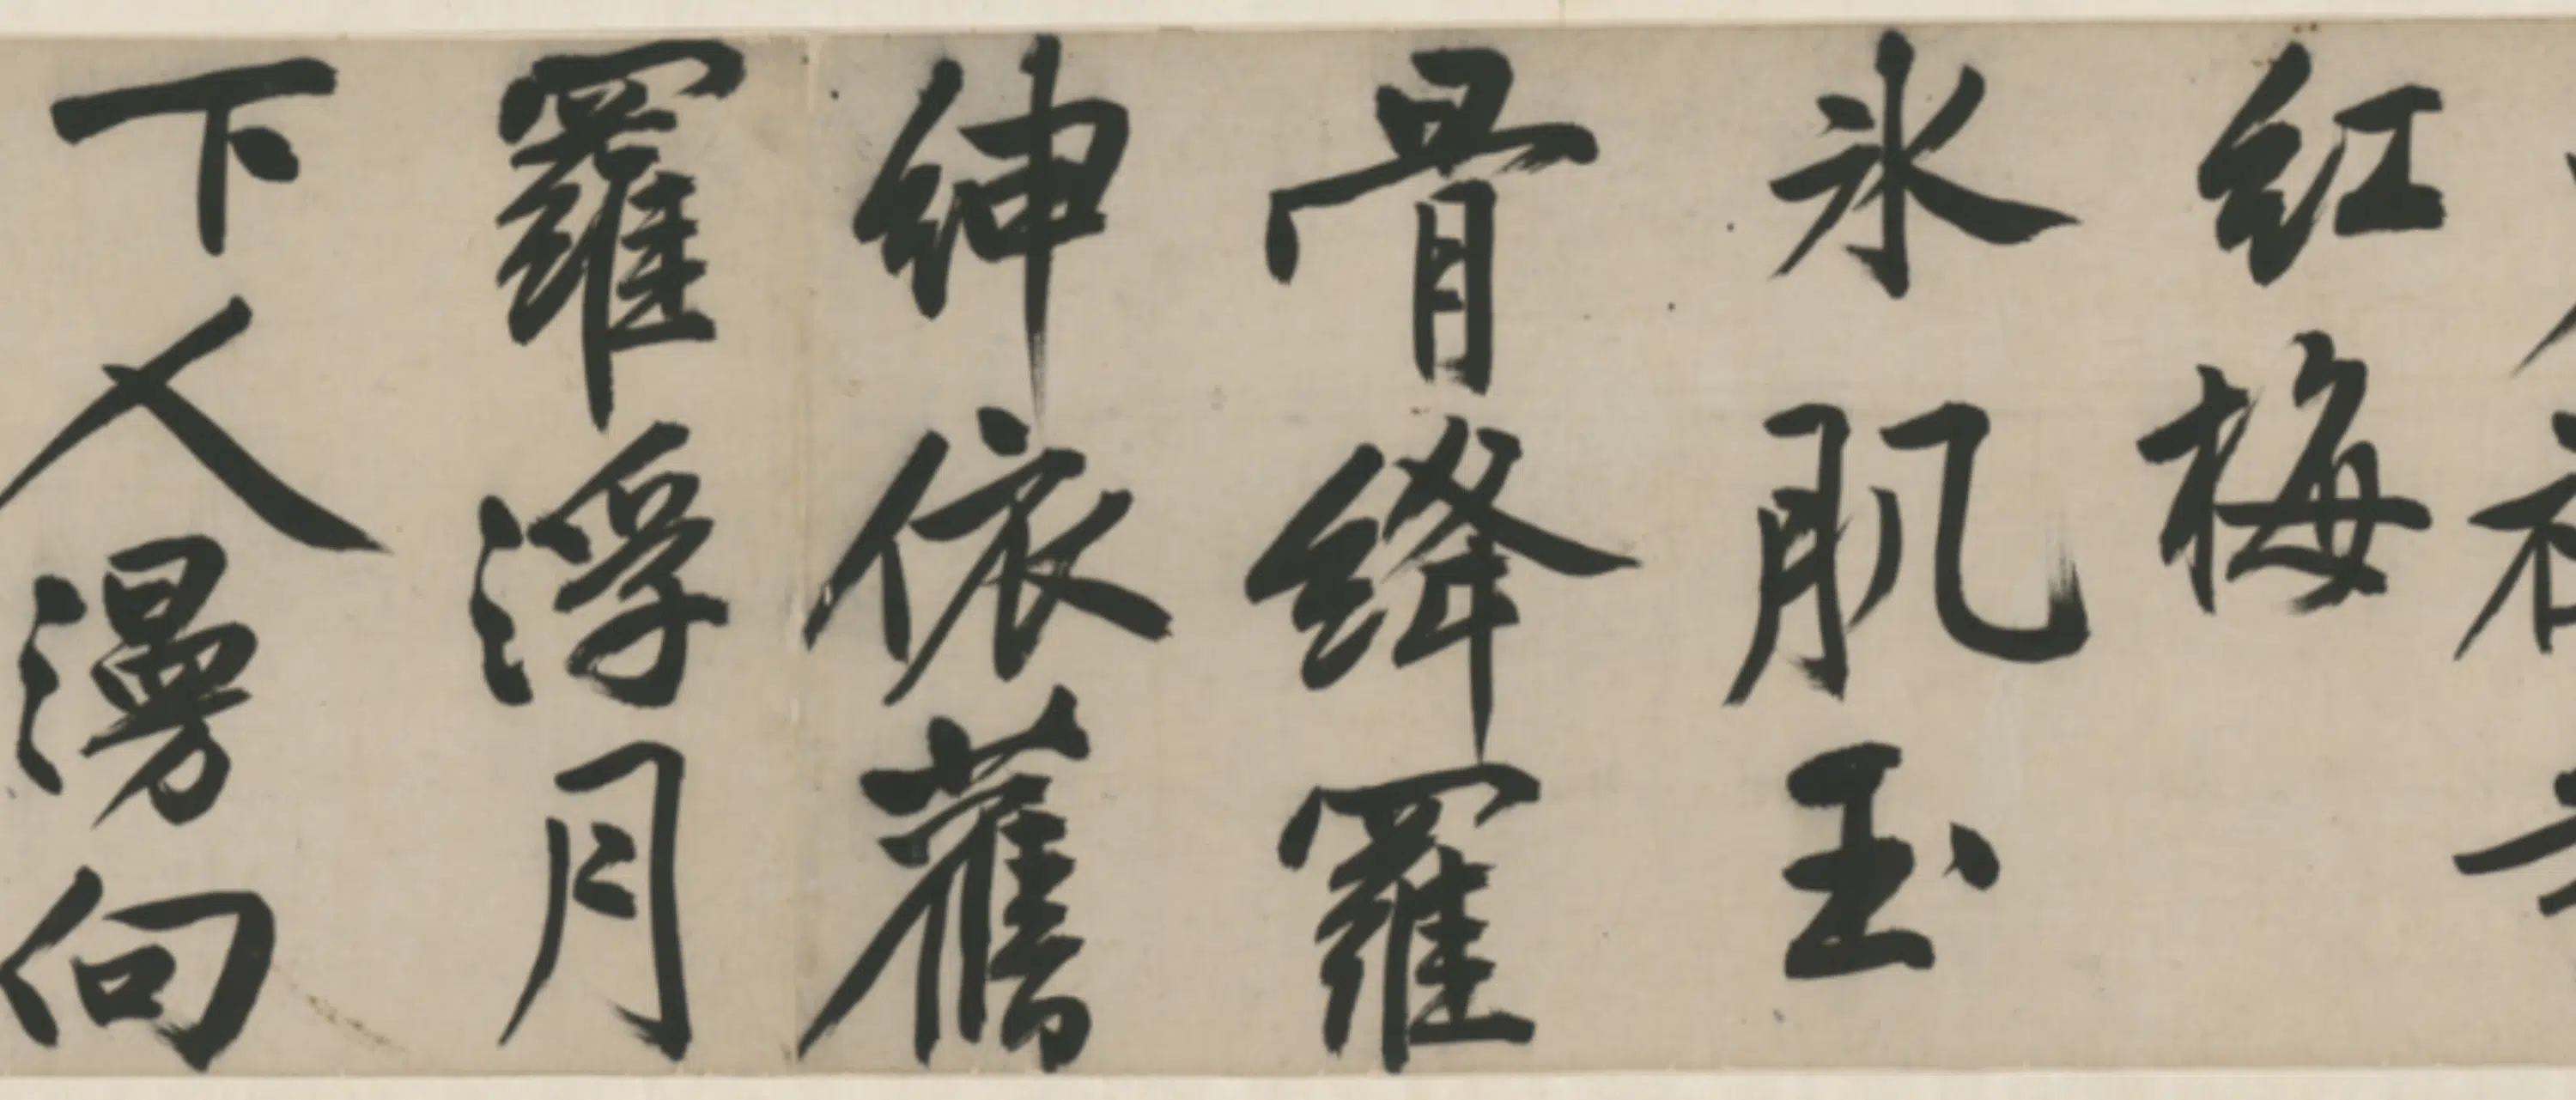 紅梅
氷肌玉
骨絳羅
紳依舊
羅浮月
下人漫向